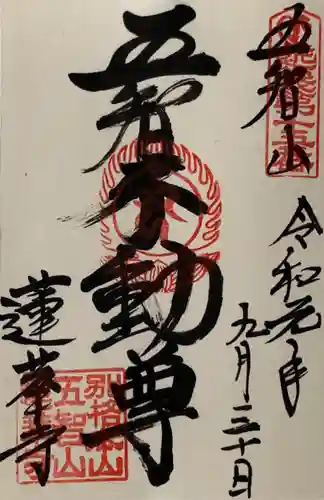 五智山
令和元年
九月三十日
五智不動尊
蓮華寺
別格本山
五智山
蓮華寺